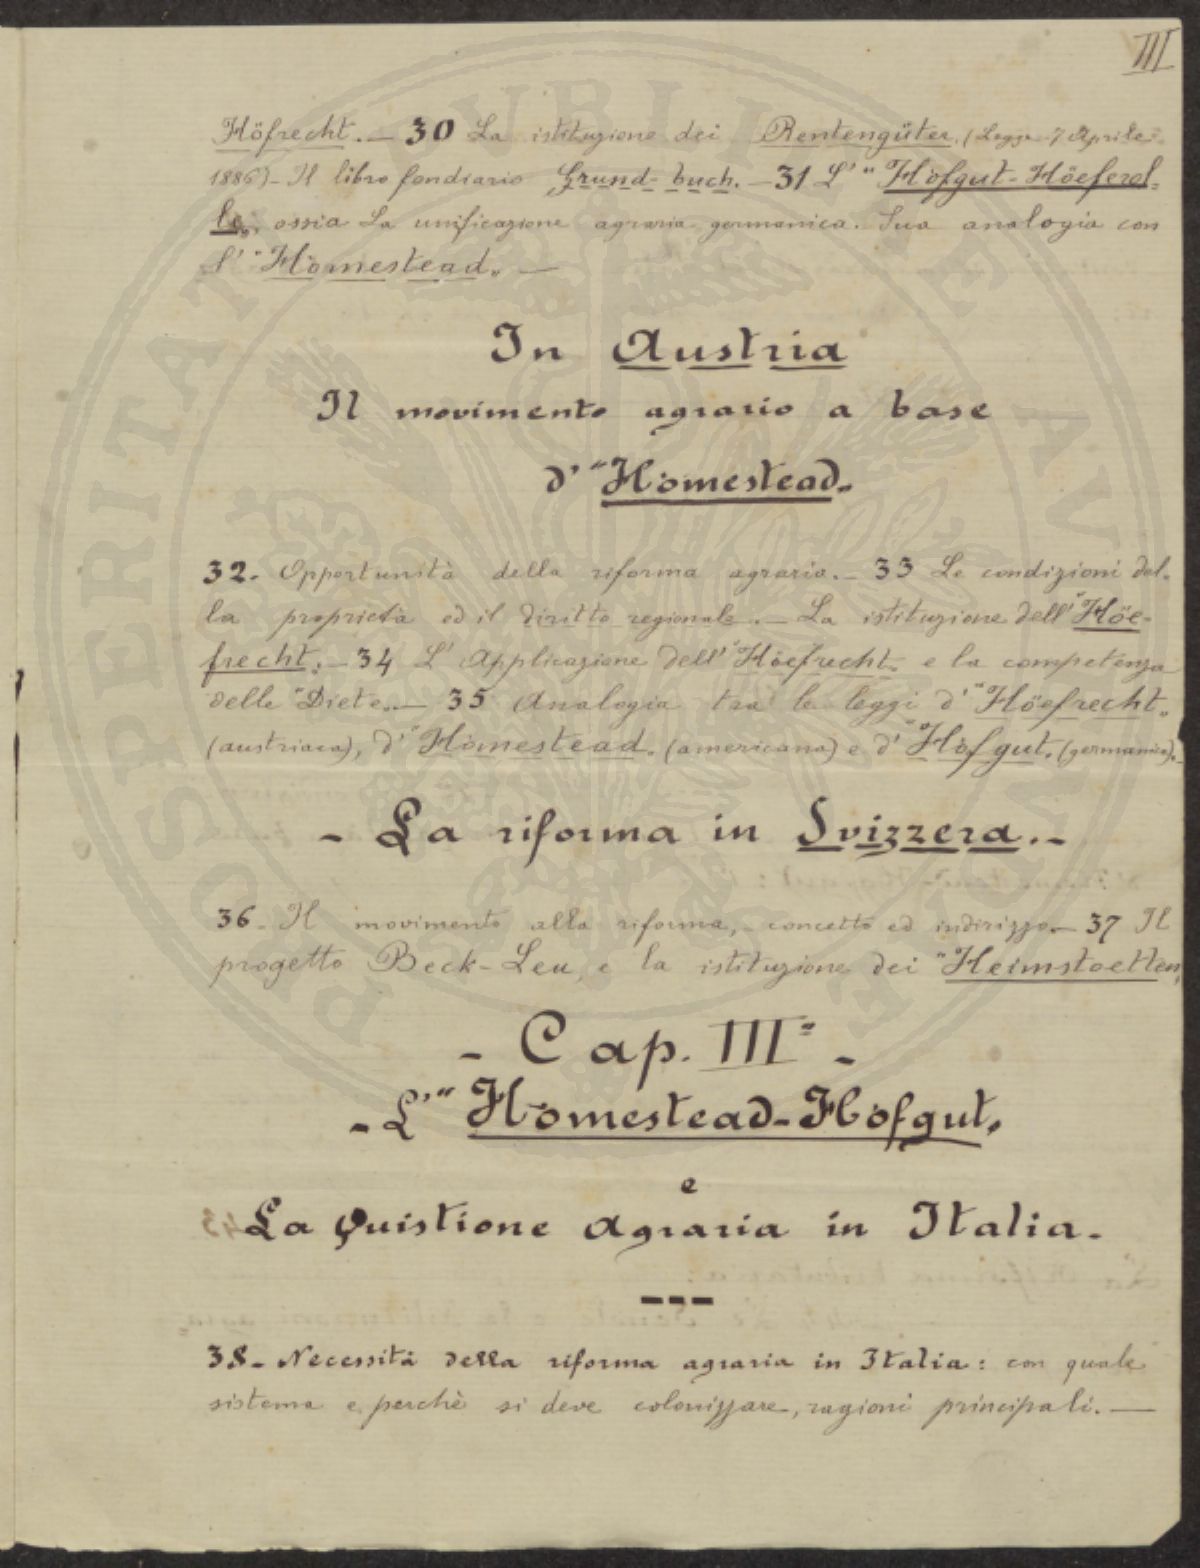 III
Höfrecht. — 30 La istituzione dei Rentengüter, (Legge 7 Aprile
1886) - Il libro fondiario Grund-buch. - 31 L'"Höfgut-Höeferol-
le„ ossia La unificazione agraria germanica. Sua analogia con
L'"Homestead„ —
In Austria
Il movimento agrario a base
d'"Homestead„
32. Opportunità della riforma agraria. - 33 Le condizioni del-
la proprietà ed il diritto regionale. - La istituzione dell'"Höe-
frecht„ - 34 L'Applicazione dell'"Höefrecht„ e la competenza
delle "Diete„ - 35 Analogia tra le leggi d'"Höefrecht„
(austriaca), d'"Homestead„ (americana) e d'"Höfgut„ (germanica).
- La riforma in Svizzera. -
36 - Il movimento alla riforma, - concetto ed indirizzo - 37 Il
progetto Beck-Leu, e la istituzione dei "Heimstoetten„
- Cap. III° -
- L'"Homestead-Höfgut„
e
La Quistione Agraria in Italia.
---
38 - Necessità della riforma agraria in Italia: con quale
sistema e perchè si deve colonizzare, ragioni principali. —
PROSPERITATI PUBLICAE AUGENDAE